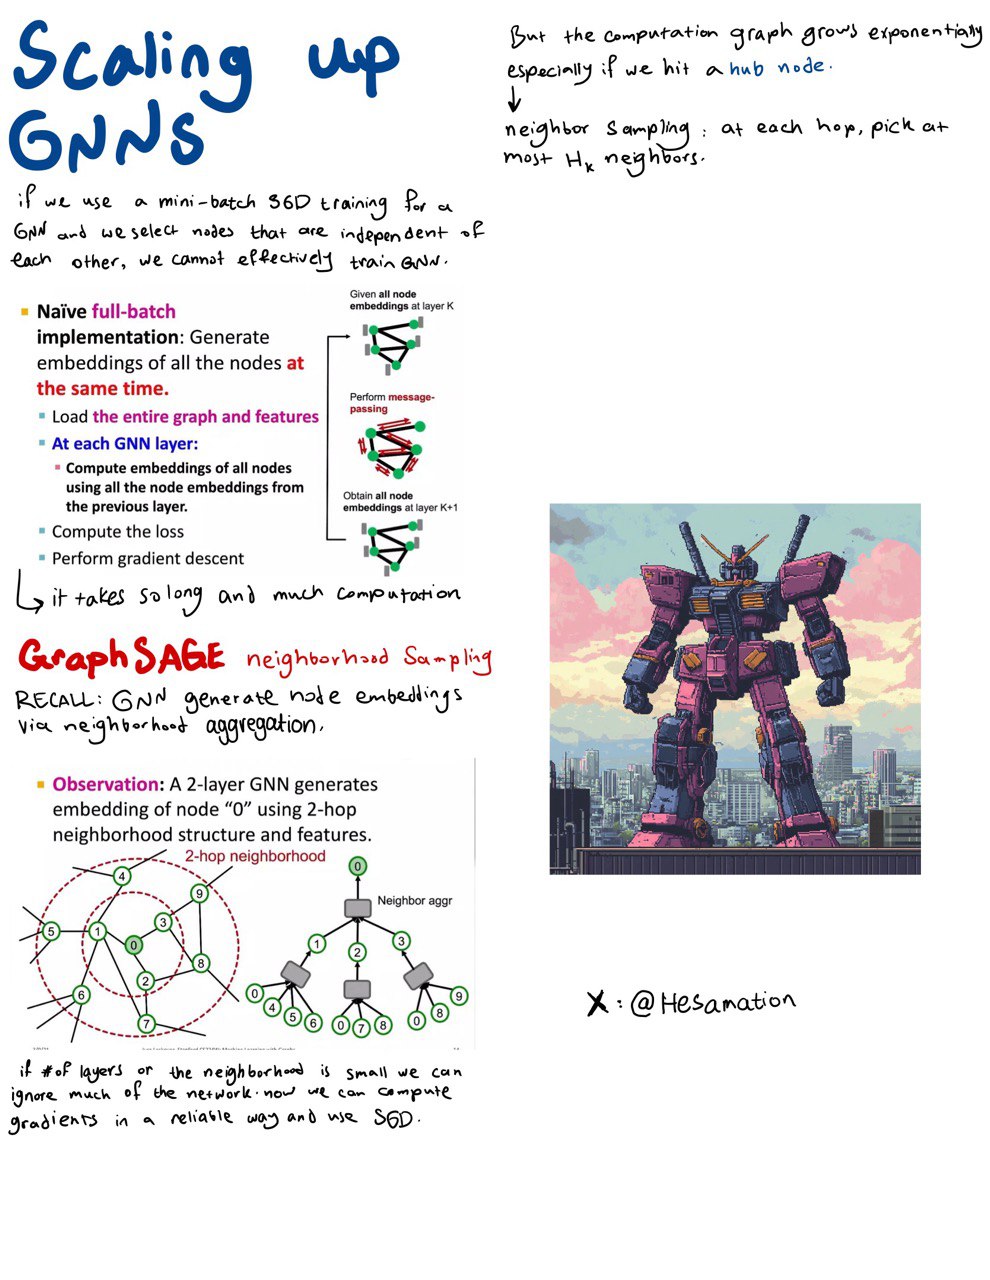 Scaling up
GNNs
if we use a mini-batch SGD training for a
GNN and we select nodes that are independent of
each other, we cannot effectively train GNN.
Naïve full-batch
implementation: Generate
embeddings of all the nodes at
the same time.
Load the entire graph and features
At each GNN layer:
Compute embeddings of all nodes
using all the node embeddings from
the previous layer.
Compute the loss
Perform gradient descent
Given all node
embeddings at layer K
Perform message-
passing
Obtain all node
embeddings at layer K+1
it takes so long and much computation
GraphSAGE neighborhood Sampling
RECALL: GNN generate node embeddings
via neighborhood aggregation.
Observation: A 2-layer GNN generates
embedding of node “0” using 2-hop
neighborhood structure and features.
2-hop neighborhood
4
9
3
5
1
0
8
2
6
7
0
Neighbor aggr
1
2
3
0
4
5
6
0
7
8
0
8
9
if # of layers or the neighborhood is small we can
ignore much of the network. now we can compute
gradients in a reliable way and use SGD.
But the computation graph grows exponentially
especially if we hit a hub node.
neighbor Sampling: at each hop, pick at
most Hk neighbors.
X: @Hesamation